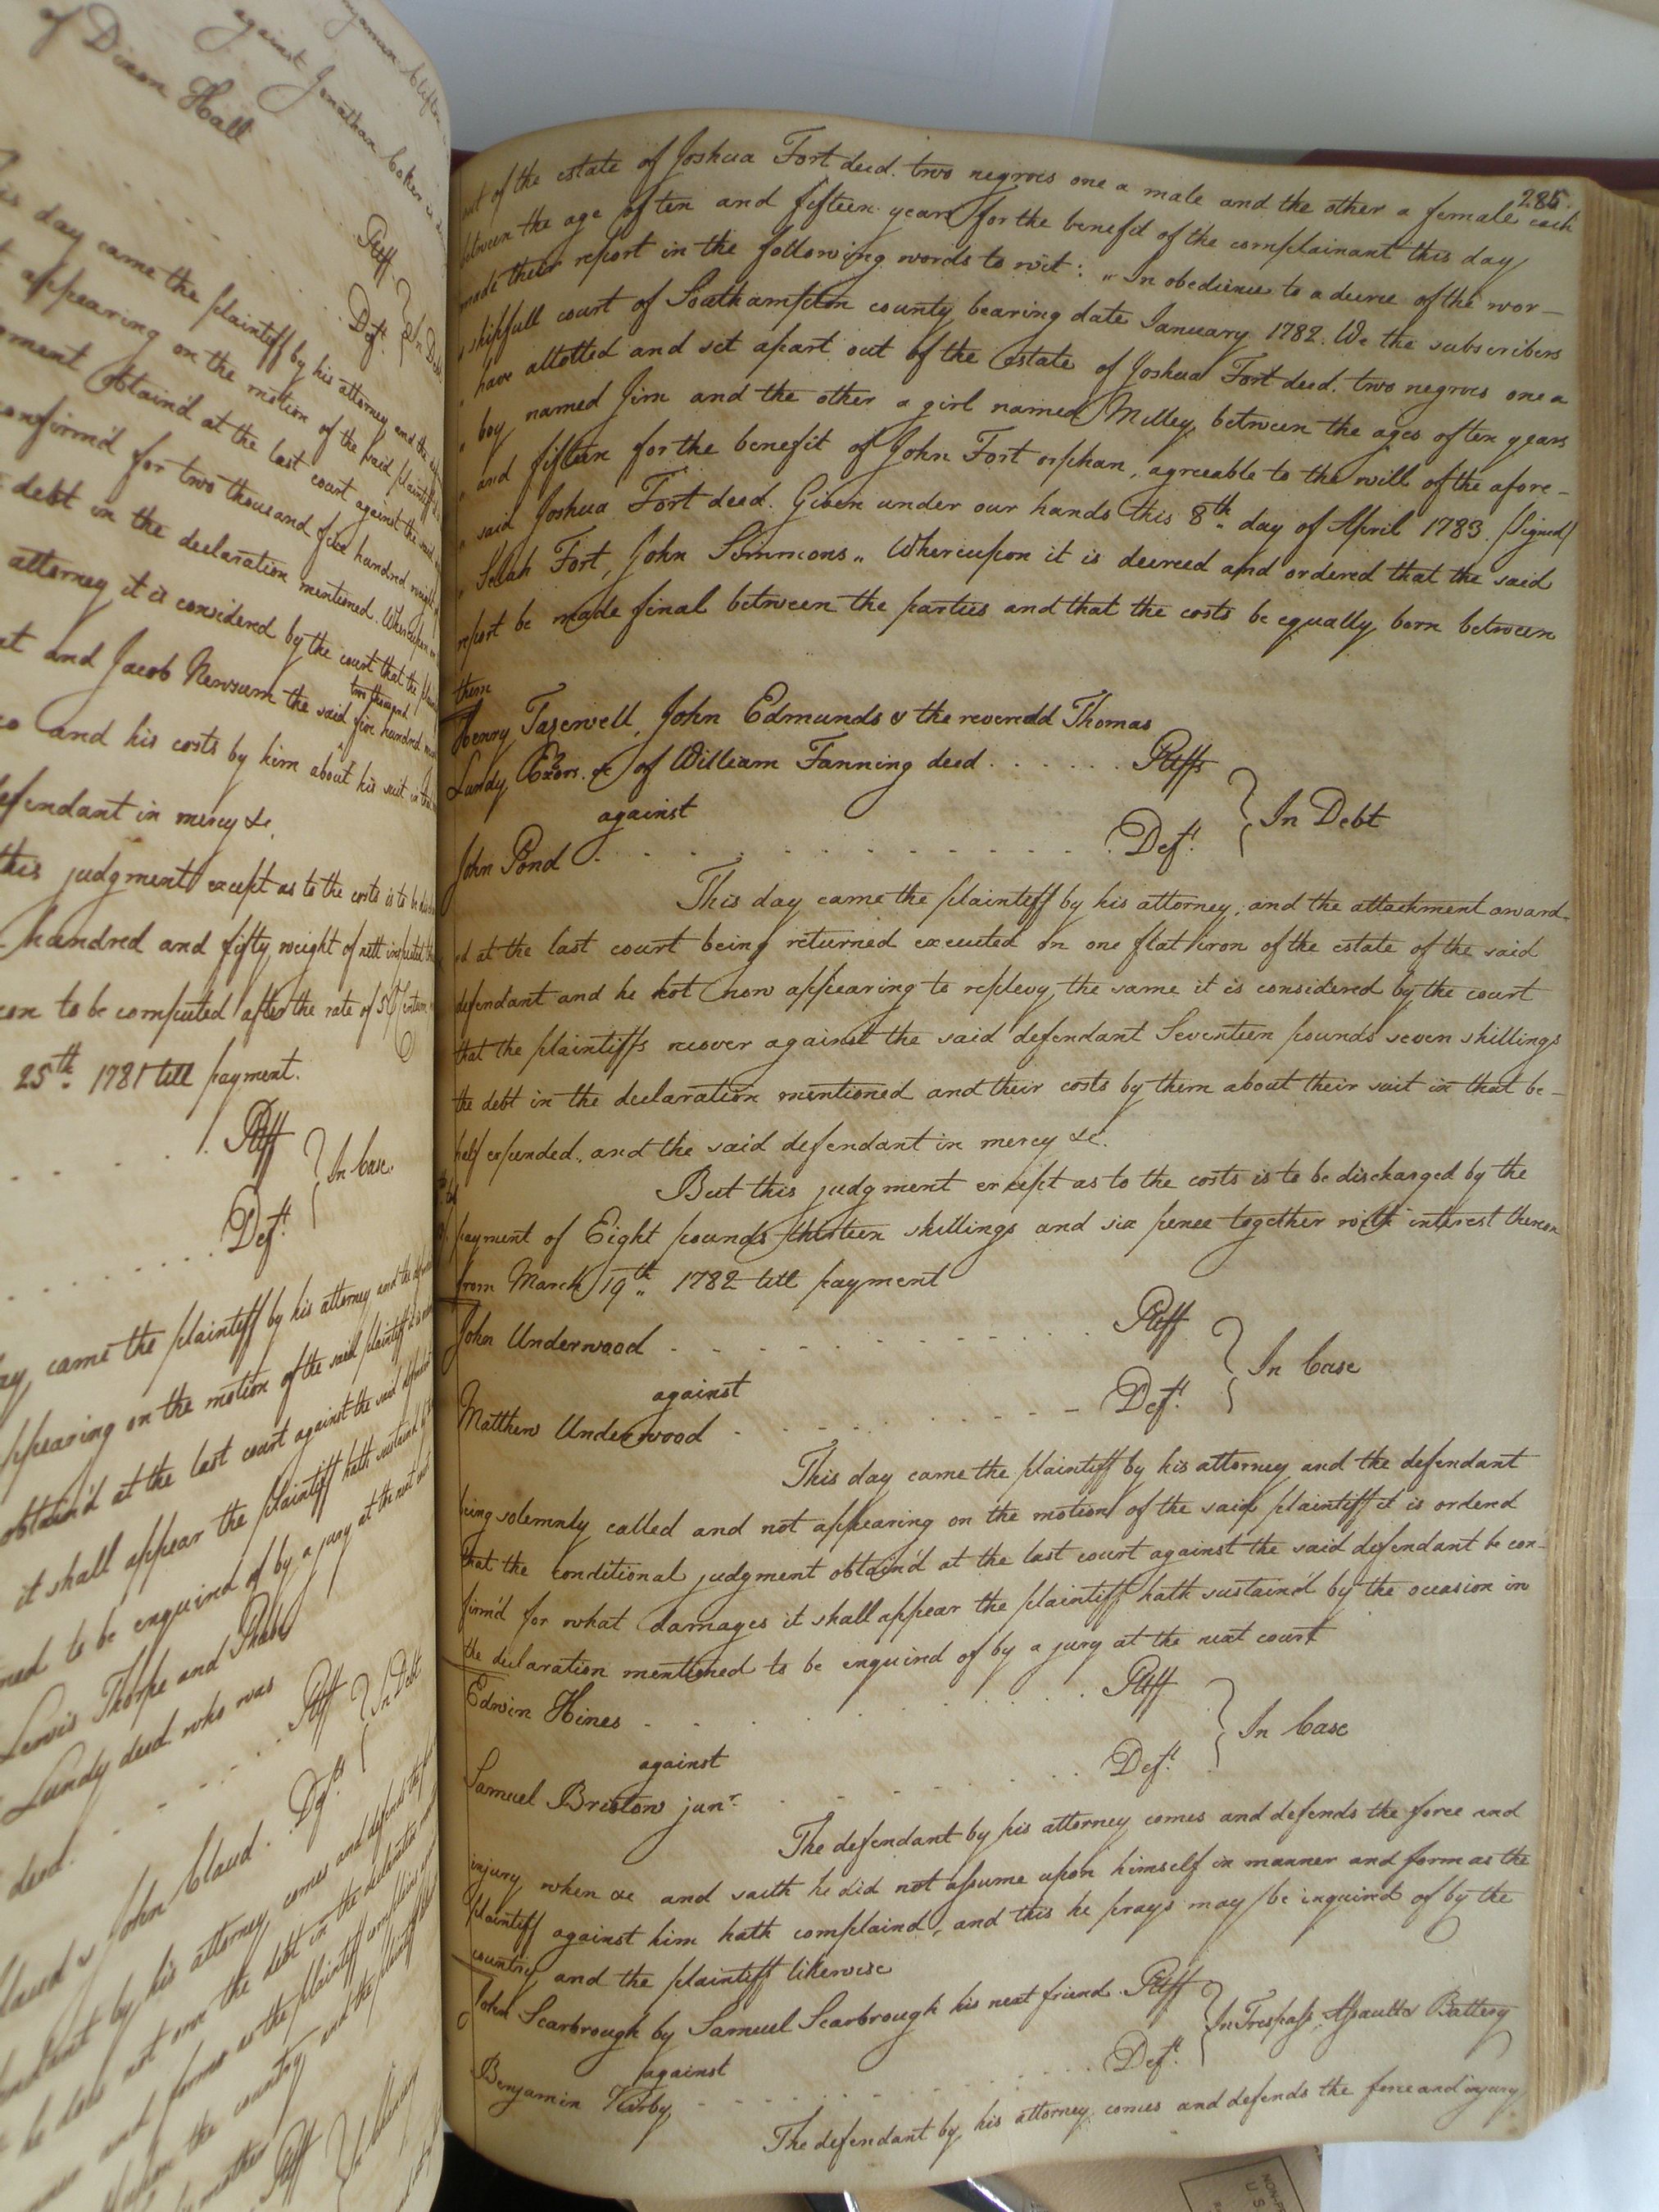 of Dixon Hall
against Jonathan Coker
Pltff
Deft.
In Debt
day came the plaintiff by his attorney and the
appearing on the motion of the said plaintiff
obtain'd at the last court against the said
confirm'd for two thousand five hundred weight
debt in the declaration mentioned. Whereupon
attorney it is considered by the court that the
and Jacob Newsum the said five hundred
two thousand
and his costs by him about his suit in
defendant in mercy &c.
this judgment except as to the costs is to be
hundred and fifty weight of nett inspected
to be computed after the rate of 5
25th. 1781 till payment.
Pltff
In Case.
Deft.
came the plaintiff by his attorney and the
appearing on the motion of the said plaintiff
obtain'd at the last court against the said
it shall appear the plaintiff hath sustain'd
to be enquired of by a jury at the next
Lewis Thorpe and
Lundy deed who was
Pltff
In Debt
deed.
Defts
John Claud
by his attorney comes and defends the
he does not owe the debt in the declaration
and form as the plaintiff
the country and the plaintiff
Pltff
285.
out of the estate of Joshua Fort deed. two negroes one a male and the other a female each
between the age of ten and fifteen years for the benefit of the complainant this day
made their report in the following words to wit: "In obedience to a decree of the wor-
" shipfull court of Southampton county bearing date January 1782. We the subscribers
" have allotted and set apart out of the estate of Joshua Fort deed. two negroes one a
" boy named Jim and the other a girl named Milley between the ages of ten years
" and fifteen for the benefit of John Fort orphan, agreeable to the will of the afore-
" said Joshua Fort deed. Given under our hands this 8th. day of April 1783. (Signed)
" Selah Fort, John Simmons" Whereupon it is decreed and ordered that the said
report be made final between the parties and that the costs be equally born between
them
Henry Tazewell, John Edmunds & the reveredd Thomas
Lundy Exors. &c of William Fanning deed . . . . . . Pltffs
against
In Debt
John Pond . . . . . . . . . . . . Deft.
This day came the plaintiff by his attorney, and the attachment award-
ed at the last court being returned executed on one flat iron of the estate of the said
defendant and he not now appearing to replevy the same it is considered by the court
that the plaintiffs recover against the said defendant Seventeen pounds seven shillings
the debt in the declaration mentioned and their costs by them about their suit in that be-
half expended. and the said defendant in mercy &c.
But this judgment except as to the costs is to be discharged by the
payment of Eight pounds thirteen shillings and six pence together with interest thereon
from March 19th. 1782 till payment
John Underwood . . . . . . . . . Pltff
against
In Case
Matthew Underwood . . . . . . . . Deft.
This day came the plaintiff by his attorney and the defendant
being solemnly called and not appearing on the motion of the said plaintiff it is orderd
that the conditional judgment obtain'd at the last court against the said defendant be con-
firm'd for what damages it shall appear the plaintiff hath sustain'd by the occasion in
the declaration mentioned to be enquired of by a jury at the next court
Edwin Hines . . . . . . . . . Pltff
against
In Case
Samuel Bristow junr. . . . . . . . Deft.
The defendant by his attorney comes and defends the force and
injury when &c and saith he did not assume upon himself in manner and form as the
plaintiff against him hath complaind, and this he prays may be inquired of by the
country and the plaintiff likewise
John Scarbrough by Samuel Scarbrough his next friend . Pltff
against
In Trespass, Assault & Battery
Benjamin Kirby . . . . . . . . . . Deft.
The defendant by his attorney comes and defends the force and injury